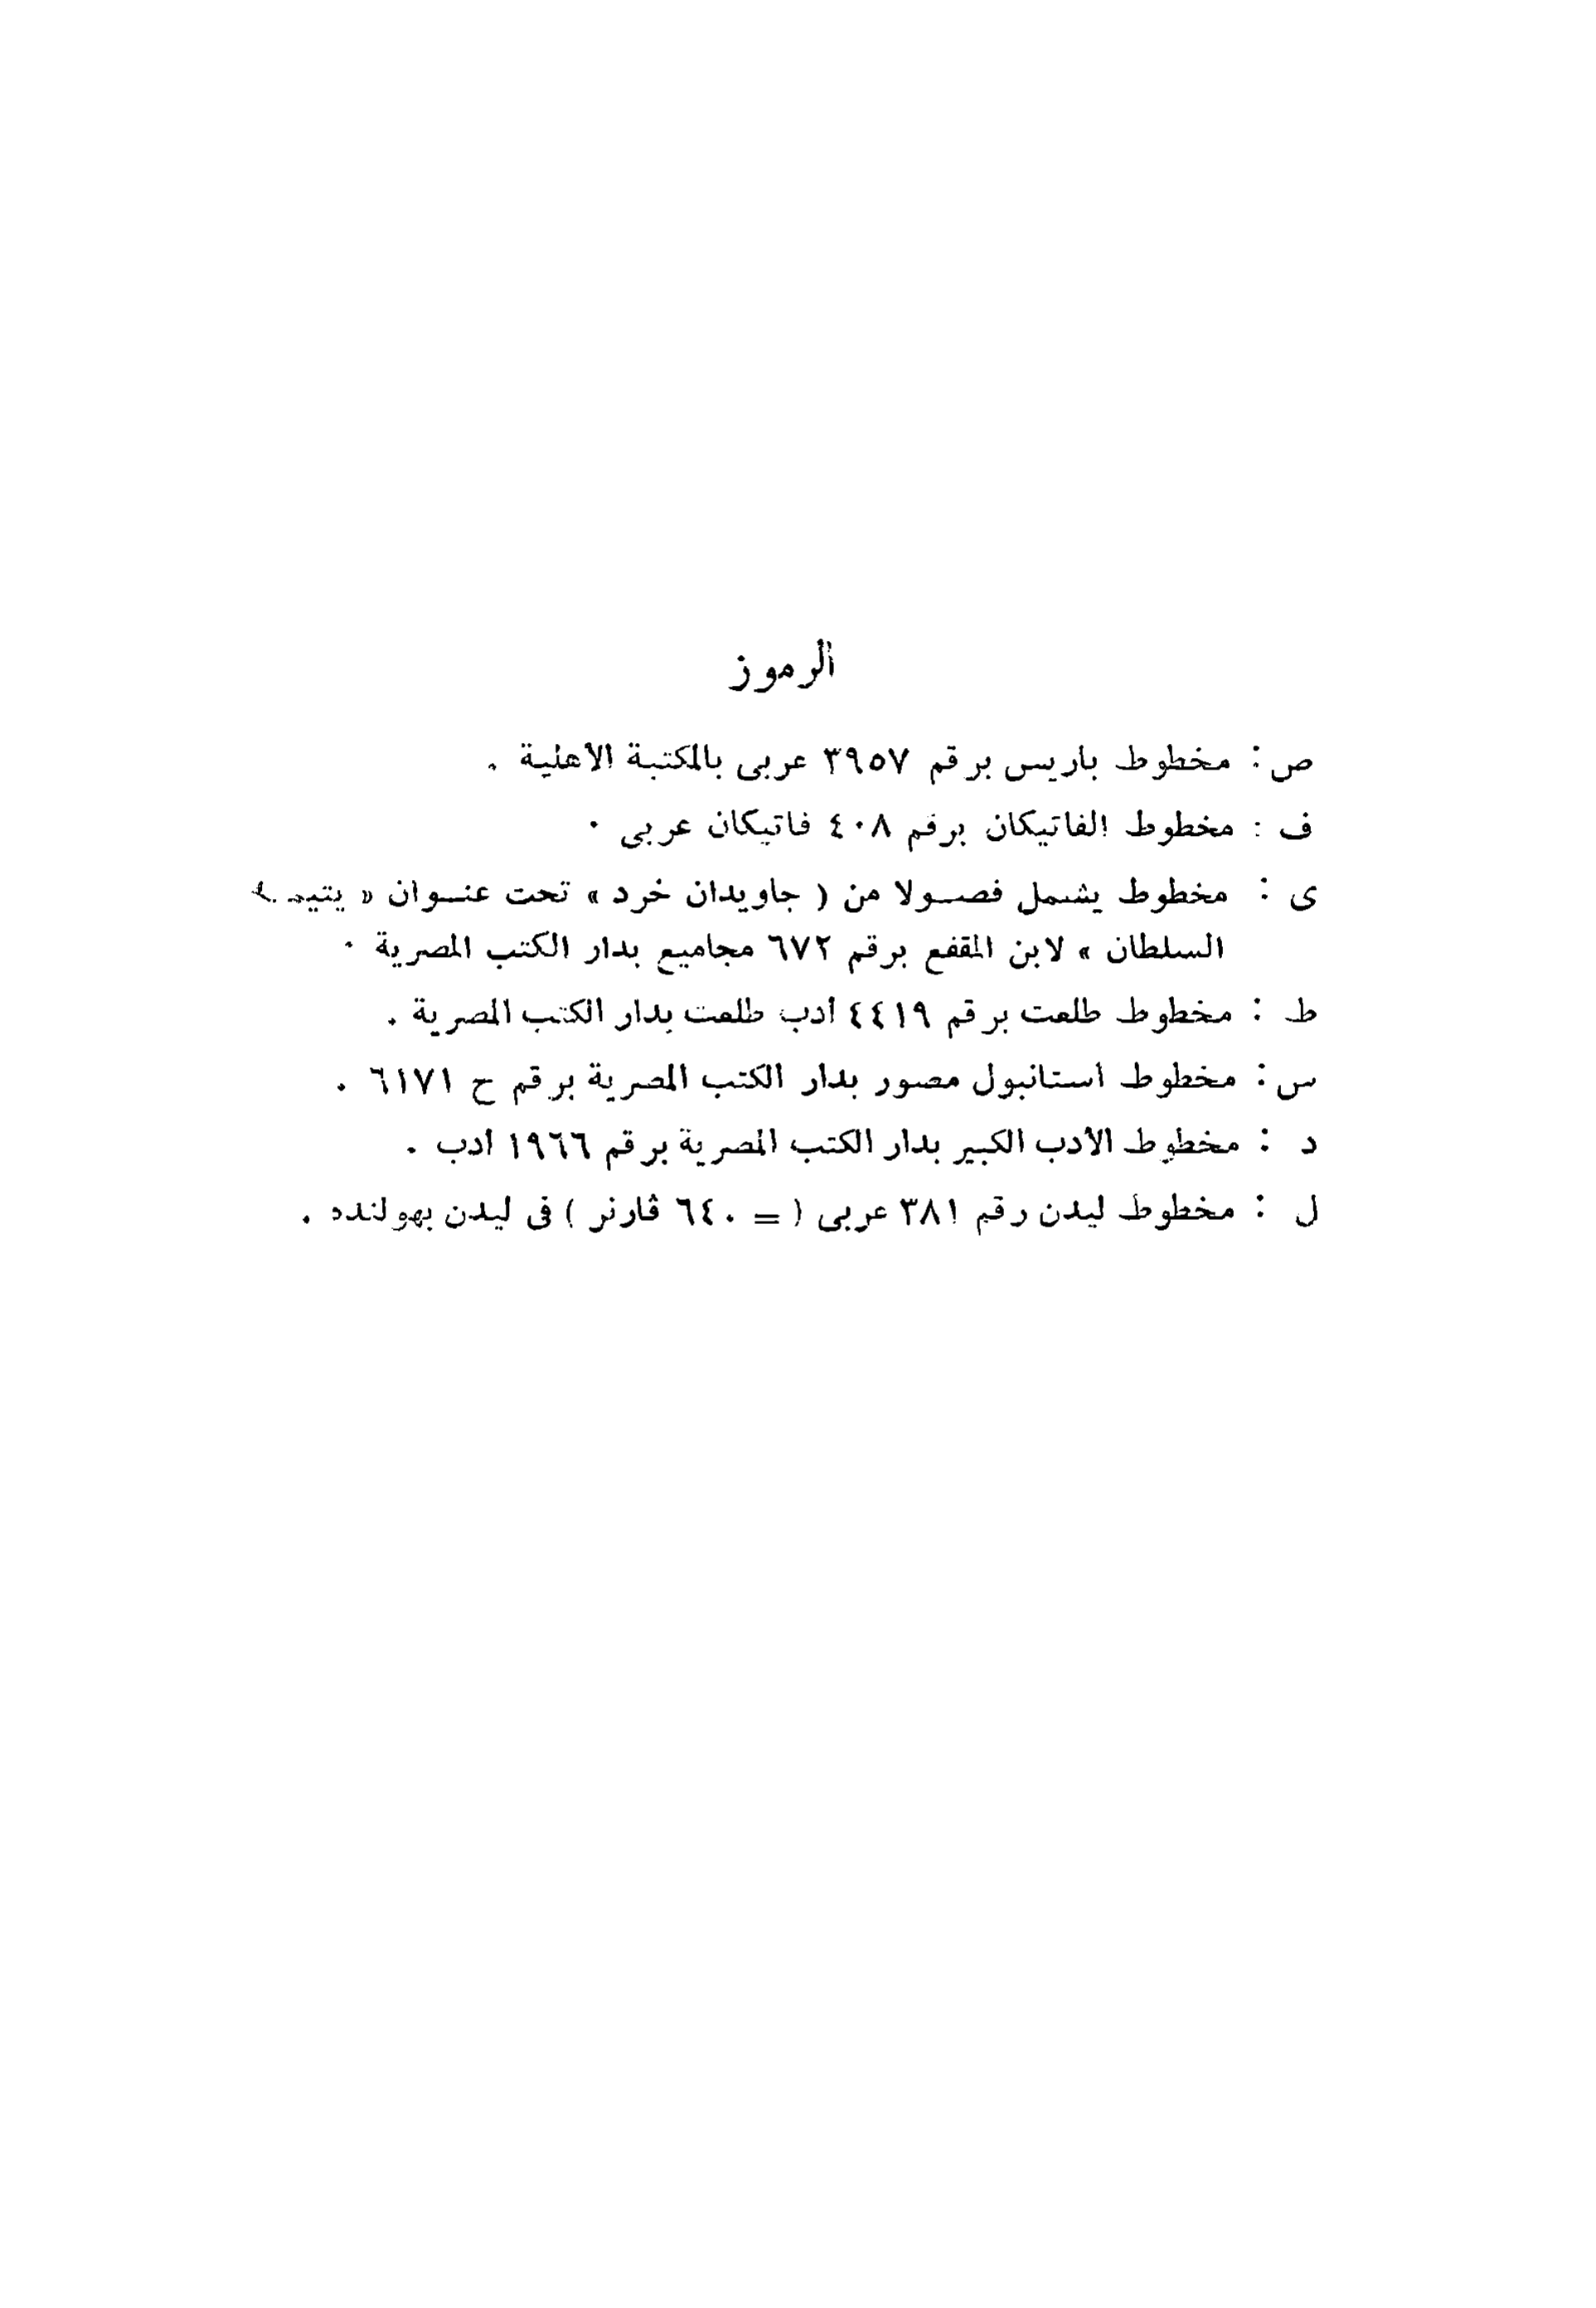 الرموز
ص : مخطوط باريس برقم ٣٩٥٧ عربى بالمكتبة الأهلية .
ف : مخطوط الفاتيكان برقم ٤٠٨ فاتيكان عربى .
ى : مخطوط يشمل فصولا من ( جاويدان خرد » تحت عنوان «
السلطان » لابن المقفع برقم ٦٧٢ مجاميع بدار الكتب المصرية .
ط : مخطوط طلعت برقم ٤٤١٩ أدب طلعت بدار الكتب المصرية .
س : مخطوط استانبول مصور بدار الكتب المصرية برقم ح ٦١٧١ .
د : مخطوط الأدب الكبير بدار الكتب المصرية برقم ١٩٦٦ أدب .
ل : مخطوط ليدن رقم ٣٨١ عربى ( = ٦٤٠ ڤارنر ) فى ليدن بهولنده .